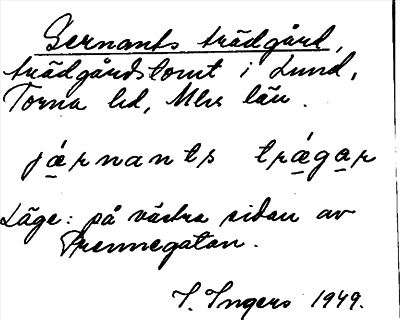 Gernants trädgård,
trädgårdstomt i Lund,
Torna hd, Mlhs län.
járnants trágar
Läge: på västra sidan av
Prennegatan.
I. Ingers 1949.